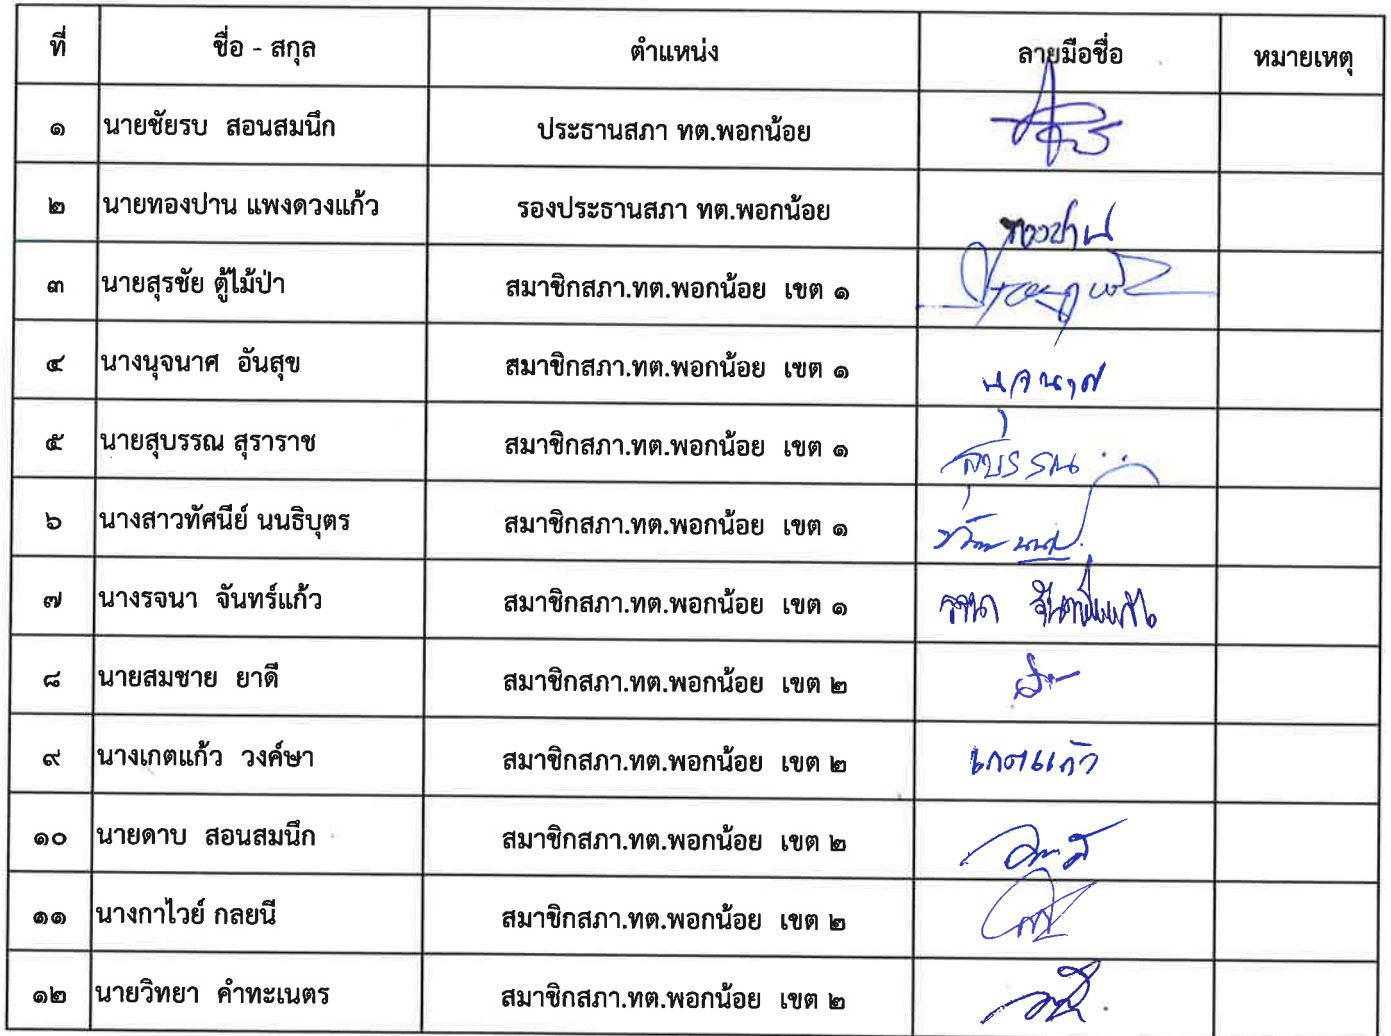 ที่ ชื่อ - สกุล ตำแหน่ง ลายมือชื่อ หมายเหตุ
๑ นายชัยรบ สอนสมนึก ประธานสภา ทต.พอกน้อย
๒ นายทองปาน แพงดวงแก้ว รองประธานสภา ทต.พอกน้อย ทองปาน
๓ นายสุรชัย ตู้ไม้ป่า สมาชิกสภา.ทต.พอกน้อย เขต ๑
๔ นางนุจนาศ อันสุข สมาชิกสภา.ทต.พอกน้อย เขต ๑
๕ นายสุบรรณ สุราราช สมาชิกสภา.ทต.พอกน้อย เขต ๑ สุบรรณ
๖ นางสาวทัศนีย์ นนธิบุตร สมาชิกสภา.ทต.พอกน้อย เขต ๑
๗ นางรจนา จันทร์แก้ว สมาชิกสภา.ทต.พอกน้อย เขต ๑ รจนา
๘ นายสมชาย ยาดี สมาชิกสภา.ทต.พอกน้อย เขต ๒
๙ นางเกตแก้ว วงค์ษา สมาชิกสภา.ทต.พอกน้อย เขต ๒ เกตแก้ว
๑๐ นายดาบ สอนสมนึก สมาชิกสภา.ทต.พอกน้อย เขต ๒
๑๑ นางกาไวย์ กลยนี สมาชิกสภา.ทต.พอกน้อย เขต ๒
๑๒ นายวิทยา คำทะเนตร สมาชิกสภา.ทต.พอกน้อย เขต ๒